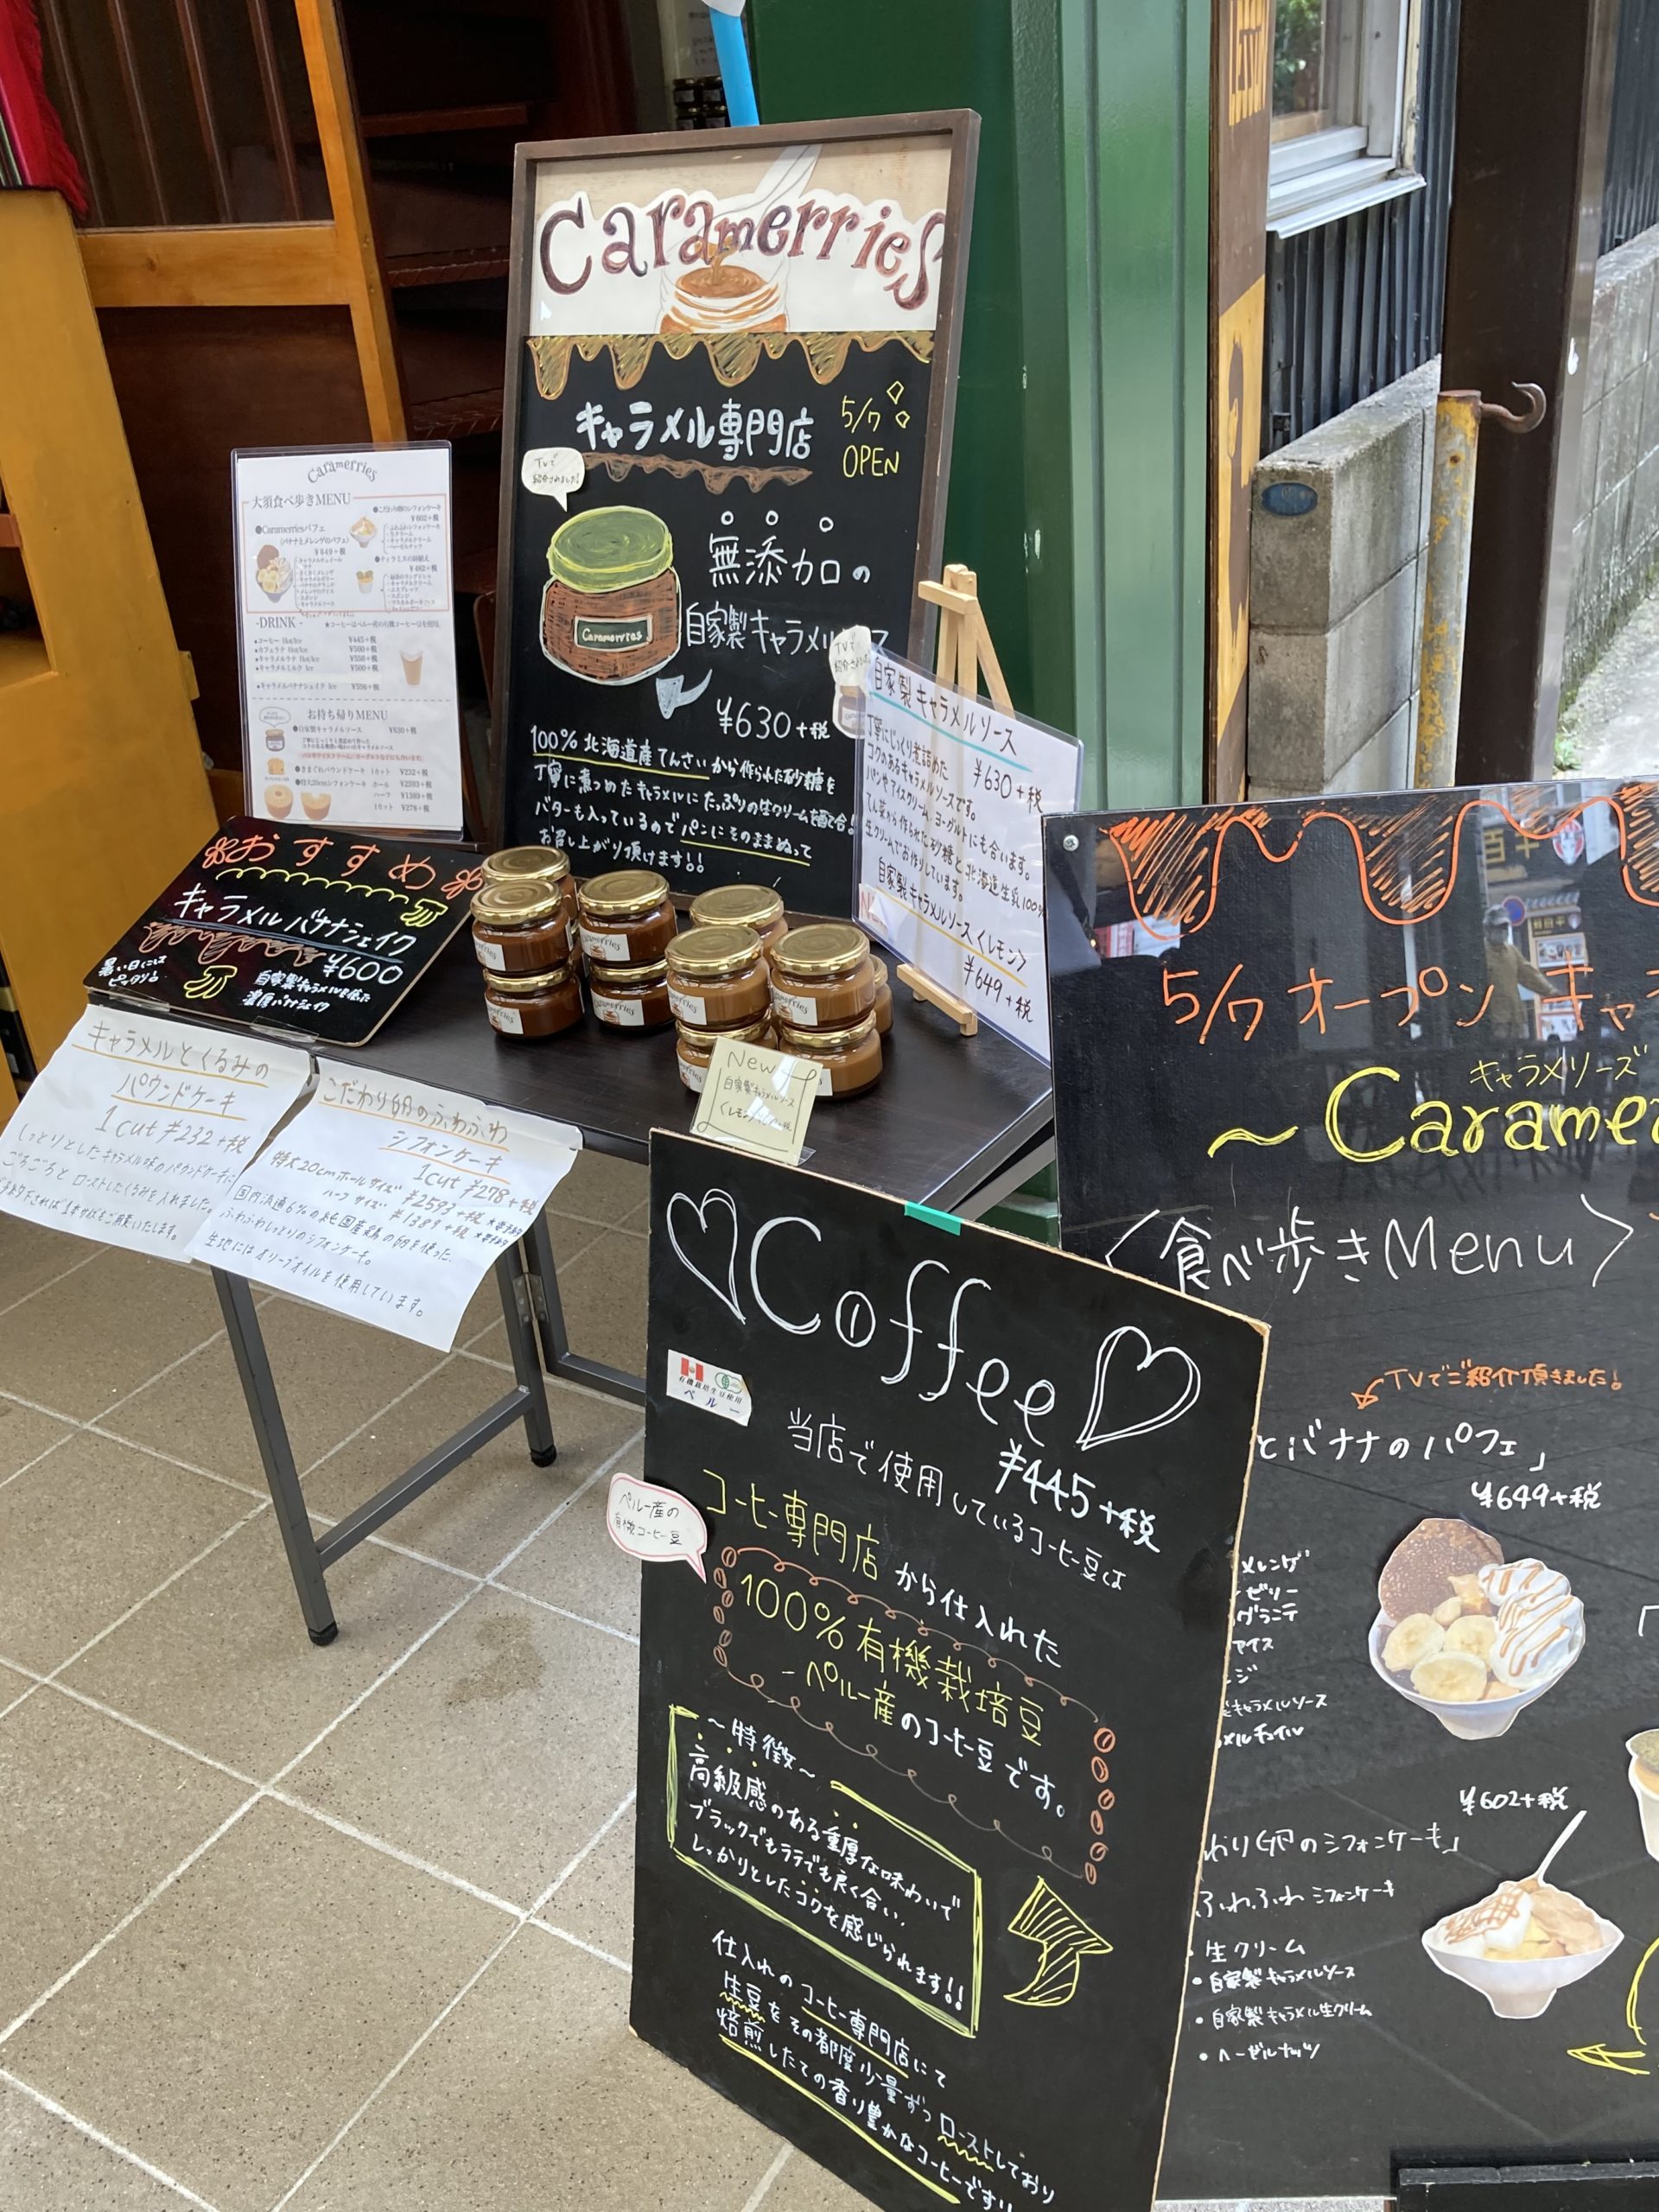 Caramerries
キャラメル専門店
5/7
OPEN
TVで
紹介されました!
無添加の
自家製キャラメル
Caramerries
¥630+税
100%北海道産てんさいから作られた砂糖を
丁寧に煮つめたキャラメルにたっぷりの生クリームを配合!
バターも入っているのでパンにそのままぬって
お召し上がり頂けます!!
Caramerries
大須食べ歩きMENU
●Caramerriesパフェ
(バナナとメレンゲのパフェ)
¥649+税
●こだわり卵のシフォンケーキ
¥602+税
-DRINK-
★コーヒーはペルー産の有機コーヒー豆を使用
コーヒー Hot/Ice ¥445+税
カフェラテ Hot/Ice ¥500+税
キャラメルラテ Hot/Ice ¥556+税
キャラメルミルク Ice ¥500+税
キャラメルバナナシェイク Ice ¥556+税
お持ち帰りMENU
●自家製キャラメルソース ¥630+税
1カット ¥232+税
●特大20cmシフォンケーキ ホール ¥2593+税
ハーフ ¥1389+税
1カット ¥278+税
おすすめ
キャラメルバナナシェイク
¥600
暑い日には
ピッタリ
自家製キャラメルを使った
濃厚バナナシェイク
自家製キャラメルソース
¥630+税
丁寧にじっくり煮詰めた
コクのあるキャラメルソースです。
パンやアイスクリーム、ヨーグルトにも合います。
てん菜から作られた砂糖と北海道生乳100%
生クリームでお作りしています。
自家製キャラメルソース〈レモン〉
¥649+税
キャラメルとくるみの
パウンドケーキ
1cut ¥232+税
しっとりとしたキャラメル味のパウンドケーキに
ごろごろとローストしたくるみを入れました。
こだわり卵のふわふわ
シフォンケーキ
1cut ¥278+税
特大20cmホールサイズ ¥2593+税
ハーフサイズ ¥1389+税
国内流通6%の純国産鶏の卵を使った
ふわふわしっとりのシフォンケーキ。
生地にはオリーブオイルを使用しています。
New
自家製キャラメルソース
Coffee
¥445+税
有機栽培生豆使用
ペルー
当店で使用しているコーヒー豆は
コーヒー専門店から仕入れた
ペルー産の
有機コーヒー豆
100%有機栽培豆
-ペルー産のコーヒー豆です。
～特徴～
高級感のある重厚な味わいで
ブラックでもラテでも良く合い、
しっかりとしたコクを感じられます!!
仕入れのコーヒー専門店にて
生豆をその都度少量ずつローストしており
焙煎したての香り豊かなコーヒーです!!
5/7オープン キャ
キャラメリーズ
～Caramer
〈食べ歩きMenu〉
TVでご紹介頂きました!
とバナナのパフェ」
¥649+税
メレンゲ
ゼリー
グラニテ
アイス
ンジ
キャラメルソース
メルチュイル
¥602+税
わり卵のシフォンケーキ」
ふわふわシフォンケーキ
・生クリーム
・自家製キャラメルソース
・自家製キャラメル生クリーム
・ヘーゼルナッツ